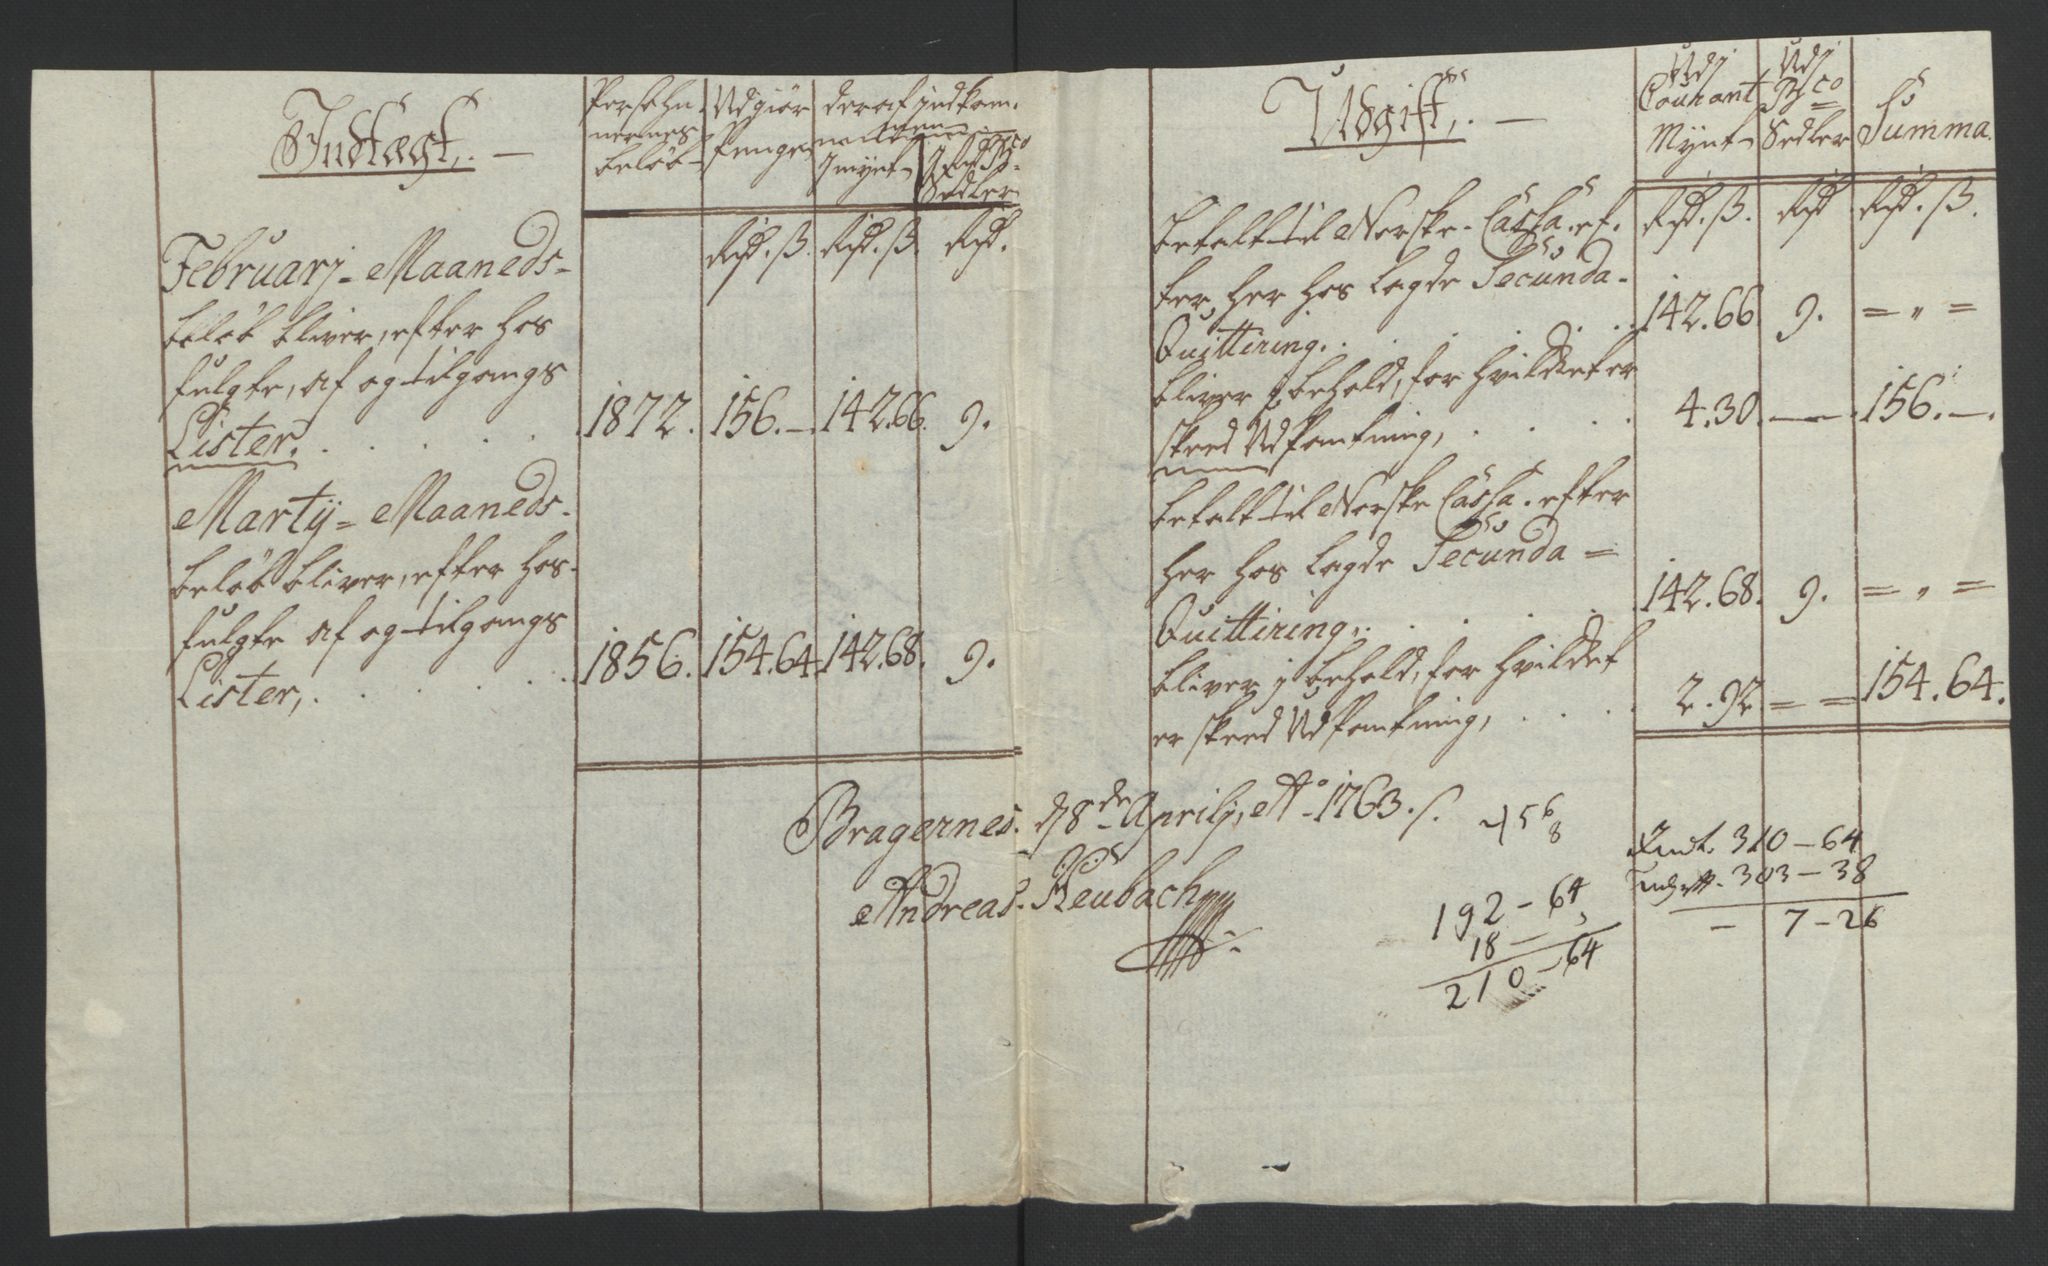 Indtægt,.
Persohn
nernes
beløb
Udgiør
Penge
deraf indkom
men
I mynt
I Bco
Sedler
Rdr. ß. Rdr. ß. Rdr.
Februarj - Maaneds-
beløb bliver, efter hos
fulgte, af og tilgangs
Lister. . . . . . 1872. 156.-. 142.66. 9.
Martij = Maaneds-
beløb bliver, efter hos-
fulgte af og tilgangs
Lister, . . . . . 1856. 154.64. 142.68. 9.
Udgift,.
Udj
Courant
Mynt
Udj
Bco
Sedler
Summa.
Rdr. ß. Rdr Rdr. ß.
betalt til Norske- Cassa. ef-
ter, her hos lagde Secunda-
Quittering. . . . . . 142.66. 9. = " =
bliver j behold, for hvilcket er
skeed Udpantning, . . . . 4.30. — . 156.—.
betalt til Norske Cassa. efter
her hos lagde Secunda =
Quittering, . . . . . 142.68. 9. = " =
bliver j behold, for hvilcket
er skeed Udpantning, . . . . 2.92 = = 154.64.
Bragernes. d 8de Aprilj, Ao 1763.
Andreas. Heubach
192 - 64
18 -
210 - 64
Indt. 310 - 64
Udgift. 303 - 38
- 7 - 26